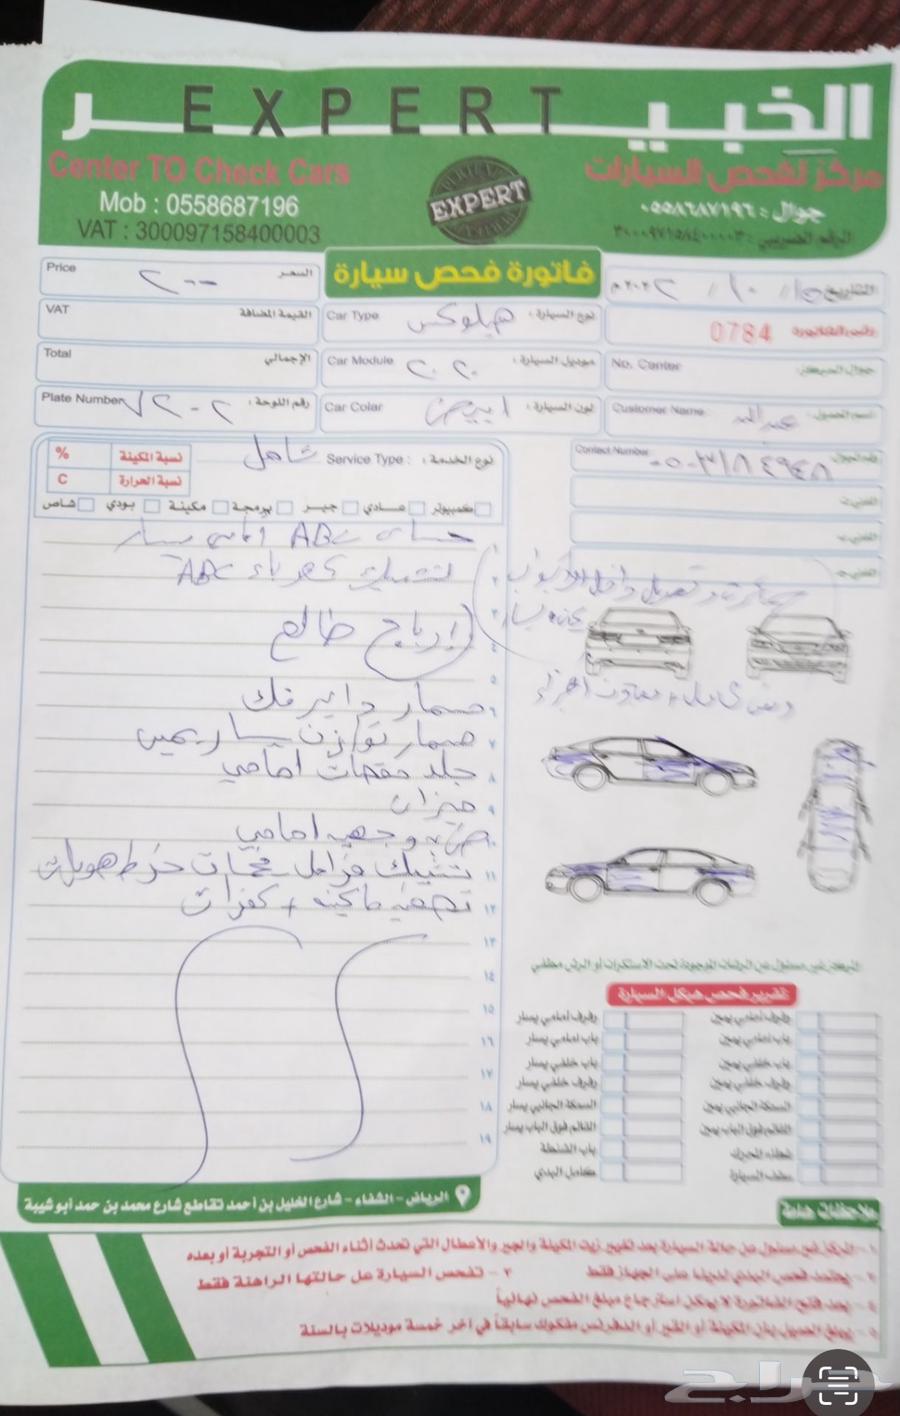 الخبير EXPERT
Center TO Check Cars
مركز لفحص السيارات
Mob : 0558687196
جوال : ٠٥٥٨٦٨٧١٩٦
VAT : 300097158400003
الرقم الضريبي : ٣٠٠٠٩٧١٥٨٤٠٠٠٠٣
EXPERT
فاتورة فحص سيارة
Price ٢٠٠ السعر
التاريخ
VAT القيمة المضافة
Car Type هيلوكس نوع السيارة :
0784 رقم الفاتورة
Total الإجمالي
Car Module ٢٠٢٠ موديل السيارة :
No. Center جوال المركز:
Plate Number ٧٢٠٢ رقم اللوحة :
Car Color ابيض لون السيارة :
Customer Name عبدالله اسم العميل:
نوع الخدمة : Service Type : شامل
Contact Number ٠٥٠٣١٨٤٩٤٨
% نسبة المكينة
C نسبة الحرارة
كمبيوتر عادي جير برمجة مكينة بودي شاص
حساس ABC امامي يسار
تشييك كهرباء ABC
ارباج طالع
مسمار دايرفك
مسمار توازن يسار يمين
جلد مقصات امامي
ميزان
وجهيه امامي
تشييك فرامل فحمات خرط هوبات
ماكينه + كفرات
١٣
١٤
١٥
١٦
١٧
١٨
١٩
المركز غير مسئول عن الرشات الموجودة تحت الاستكرات أو الرش مطفي
تقرير فحص هيكل السيارة
رفرف أمامي يمين رفرف أمامي يسار
باب أمامي يمين باب أمامي يسار
باب خلفي يمين باب خلفي يسار
رفرف خلفي يمين رفرف خلفي يسار
السمكة الجانبي يمين السمكة الجانبي يسار
القائم فوق الباب يمين القائم فوق الباب يسار
غطاء المحرك باب الشنطة
سقف السيارة كامل البدي
الرياض - الشفاء - شارع الخليل بن أحمد تقاطع شارع محمد بن حمد أبو شيبة
ملاحظات هامة
١ - المركز غير مسئول عن حالة السيارة بعد تغيير زيت المكينة والجير والأعطال التي تحدث أثناء الفحص أو التجربة أو بعده
٢ - يعتمد فحص البدي لدينا على الجهاز فقط ٣ - تفحص السيارة عل حالتها الراهنة فقط
٤ - بعد فتح الفاتورة لا يمكن استرجاع مبلغ الفحص نهائياً
٥ - يبلغ العميل بأن المكينة أو القير أو الدفرنس مفكوك سابقاً في آخر خمسة موديلات بالسنة
حراج